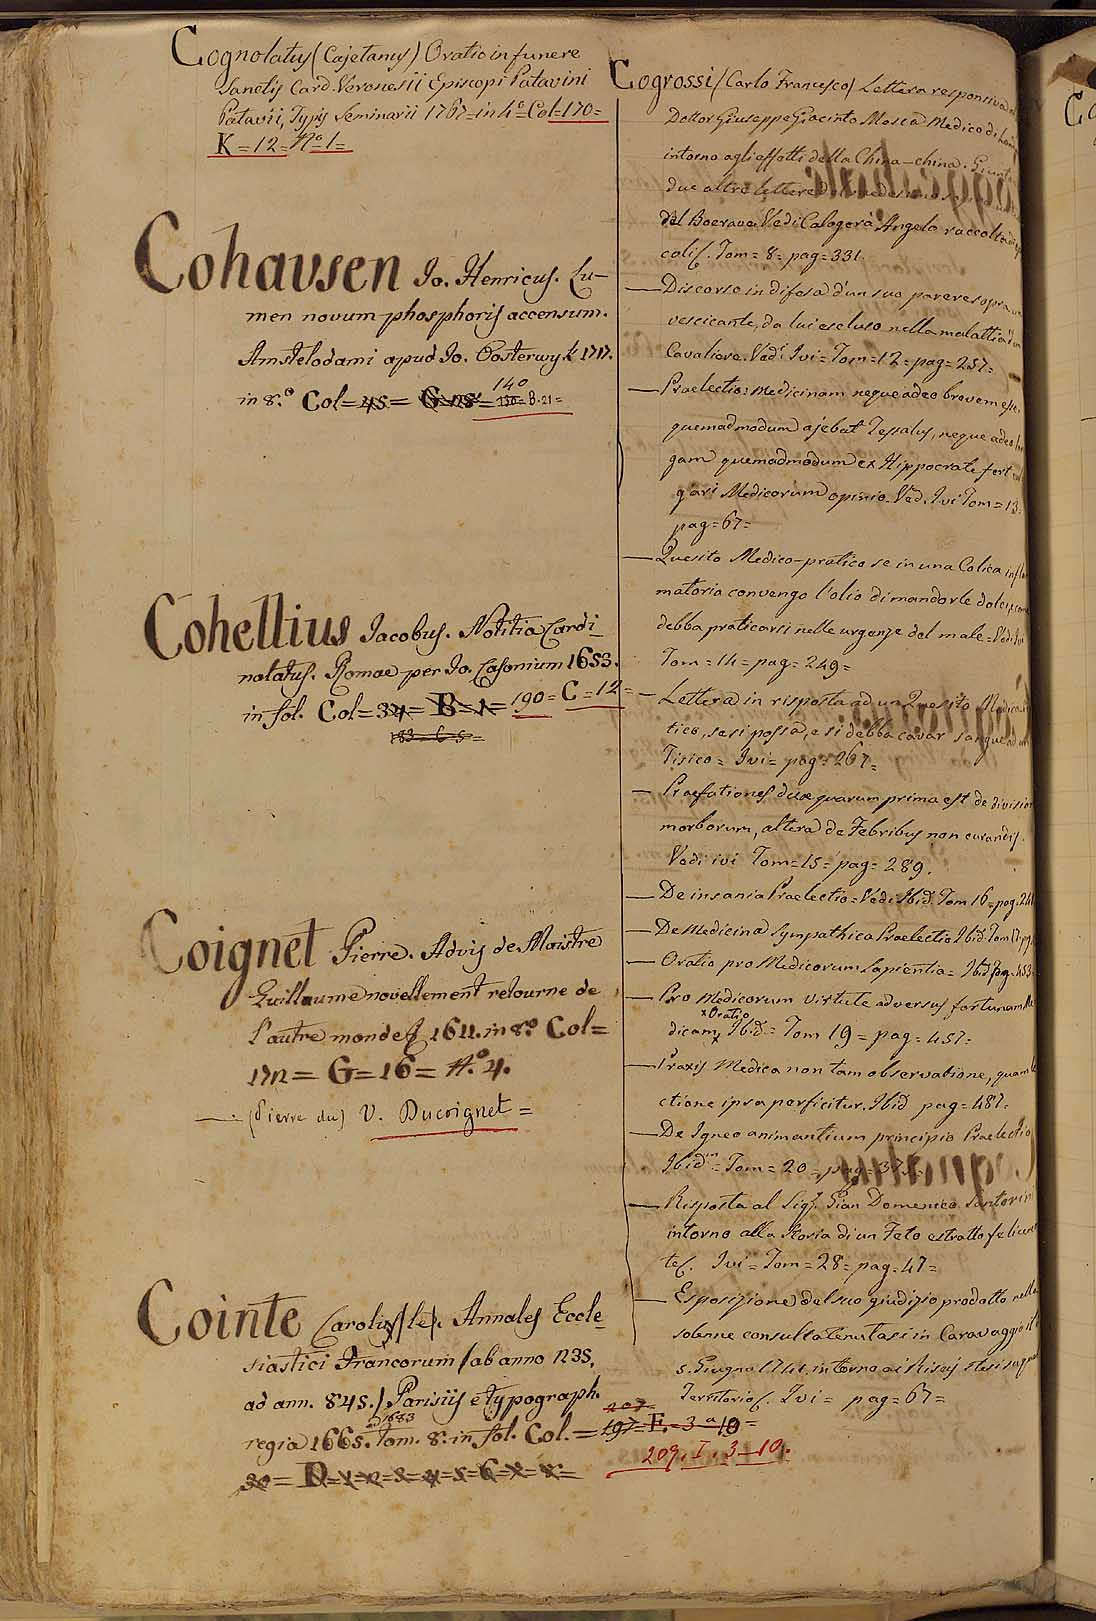 Cognolatus (Cajetanus) Oratio in funere
Sanctis Card. Veronesii Episcopi Patavini
Patavii, Typis Seminarii 1767 = in 4.° Col = 170 =
K = 12 = N.° 1 =
Cohausen Jo. Henricus. Lu-
men novum phosphoris accensum.
Amstelodami apud Jo. Oosterwyk 1717.
in 8.° Col = 45 = G = 140
130 = B. 21 =
Cohellius Jacobus. Notitia Cardi_
nalatus. Romae per Jo. Casonium 1653.
in fol. Col = 34 = B = 1 = 190 = C = 12 =
183 = C 5 =
Coignet Pierre. Advis de Maistre
Guillaume novellement retourne de
l'autre monde &c 1611. in 8.° Col =
172 = G = 16 = N.° 4.
—: (Pierre du) V. Ducoignet =
Cointe Carolus (le). Annales Eccle_
siastici Francorum (ab anno 235,
ad ann. 845.) Parisiis e typograph.
regia 1665. ad 1683 Tom. 8. in fol. Col. = 207 =
197 = F. = 3 a 10 =
30 = D = 1 = 2 = 3 = 4 = 5 = 6 = 7 = 8 =
209. I. 3 - 10.
Cogrossi (Carlo Francesco) Lettera responsiva
Dottor Giuseppe Giacinto Mosca Medico di
intorno agli effetti della China-china. Giunte
due altre lettere
del Boerave. Vedi Calogerà Angelo raccolta
colis. Tom = 8 = pag = 331
— Discorso in difesa d'un suo parere sopra un
vescicante, da lui escluso nella malattia d'un
Cavaliere. Ved. Ivi = Tom = 12 = pag = 257 =
— Praelectio: Medicinam neque adeo brevem esse,
quemadmodum ajebat Tessalus, neque adeo lon
gam quemadmodum ex Hippocrate fert vul
gari Medicorum opinio. Ved. Ivi Tom = 13 =
pag = 67 =
— Quesito Medico-pratico se in una Colica infla
matoria convengo l'olio di mandorle dolci, e come
debba praticarsi nelle urgenze del male = Vedi Ivi
Tom = 14 = pag = 249 =
— Lettera in risposta ad un Quesito Medico
tico, se si possa, e si debba cavar sangue ad un
Tisico = Ivi = pag = 267 =
— Praefationes duae quarum prima est de division
morborum, altera de Febribus non curandis.
Vedi ivi Tom = 15 = pag = 289.
— De insania Praelectio = Vedi Ibid. Tom 16 = pag. 241
— De Medicina Sympathica Praelectio Ibid. Tom 17 pag.
— Oratio pro Medicorum Sapientia = Ibid pag. 453
— Pro Medicorum virtute adversus fortunam Me
dicam × Oratio Ibid. = Tom 19 = pag = 457 =
— Praxis Medica non tam observatione, quam le
ctione ipsa perficitur. Ibid pag = 487 =
— De Igneo animantium principio Praelectio
Ibid.m = Tom = 20 = pag = 375 =
— Risposta al Sig.r Gian Domenico Santorini
intorno alla Storia di un Feto estratto felicem
te &c. Ivi = Tom = 28 = pag = 47 =
— Esposizione del suo giudizio prodotto nella
solenne consulta tenutasi in Caravaggio il
5. Giugno intorno ai Risej stesi sopra quel
Territorio &c. Ivi = pag = 67 =